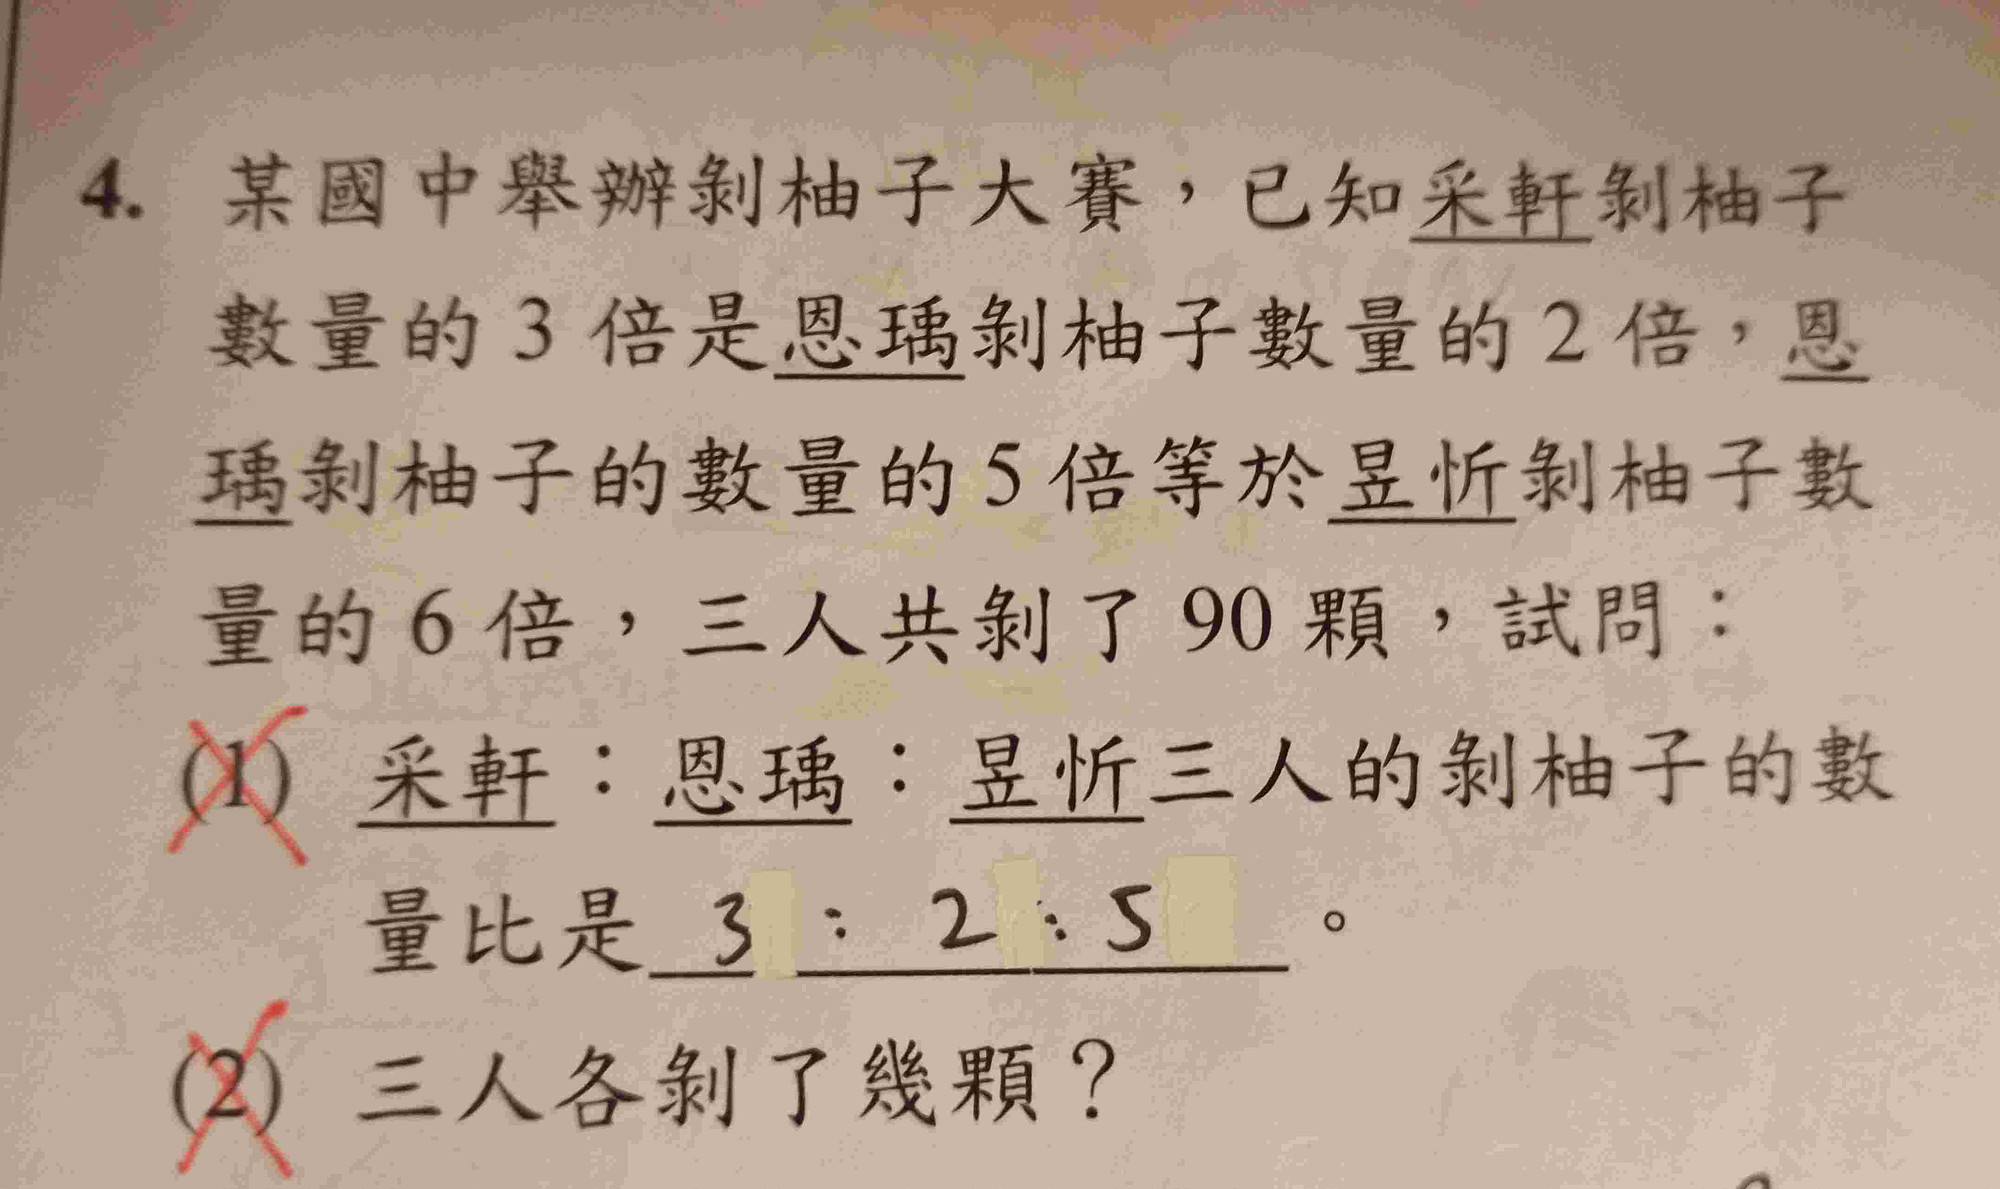 4. 某國中舉辦剝柚子大賽，已知采軒剝柚子
數量的 3 倍是恩瑀剝柚子數量的 2 倍，恩
瑀剝柚子的數量的 5 倍等於昱忻剝柚子數
量的 6 倍，三人共剝了 90 顆，試問：
(1) 采軒：恩瑀：昱忻三人的剝柚子的數
量比是 3 : 2 : 5 。
(2) 三人各剝了幾顆？